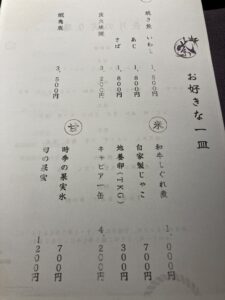 お好きな一皿
焼き魚 いわし 1,500円
あじ 1,800円
さば 1,800円
3,200円
蝦夷鹿 3,500円
米
和牛しぐれ煮 1,000円
自家製じゃこ 700円
地養卵(TKG) 300円
キャビア一缶 4,200円
甘
時季の果実氷 700円
旬の果実 1,200円